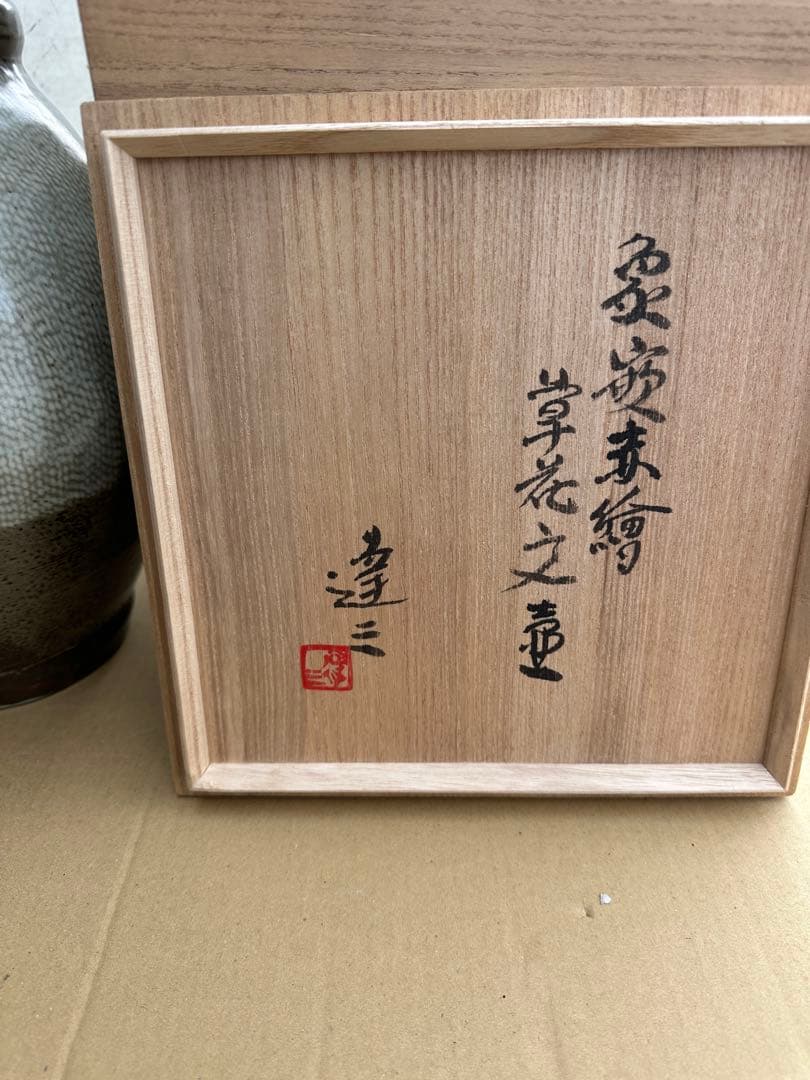 象嵌赤繪
草花文壷
達三